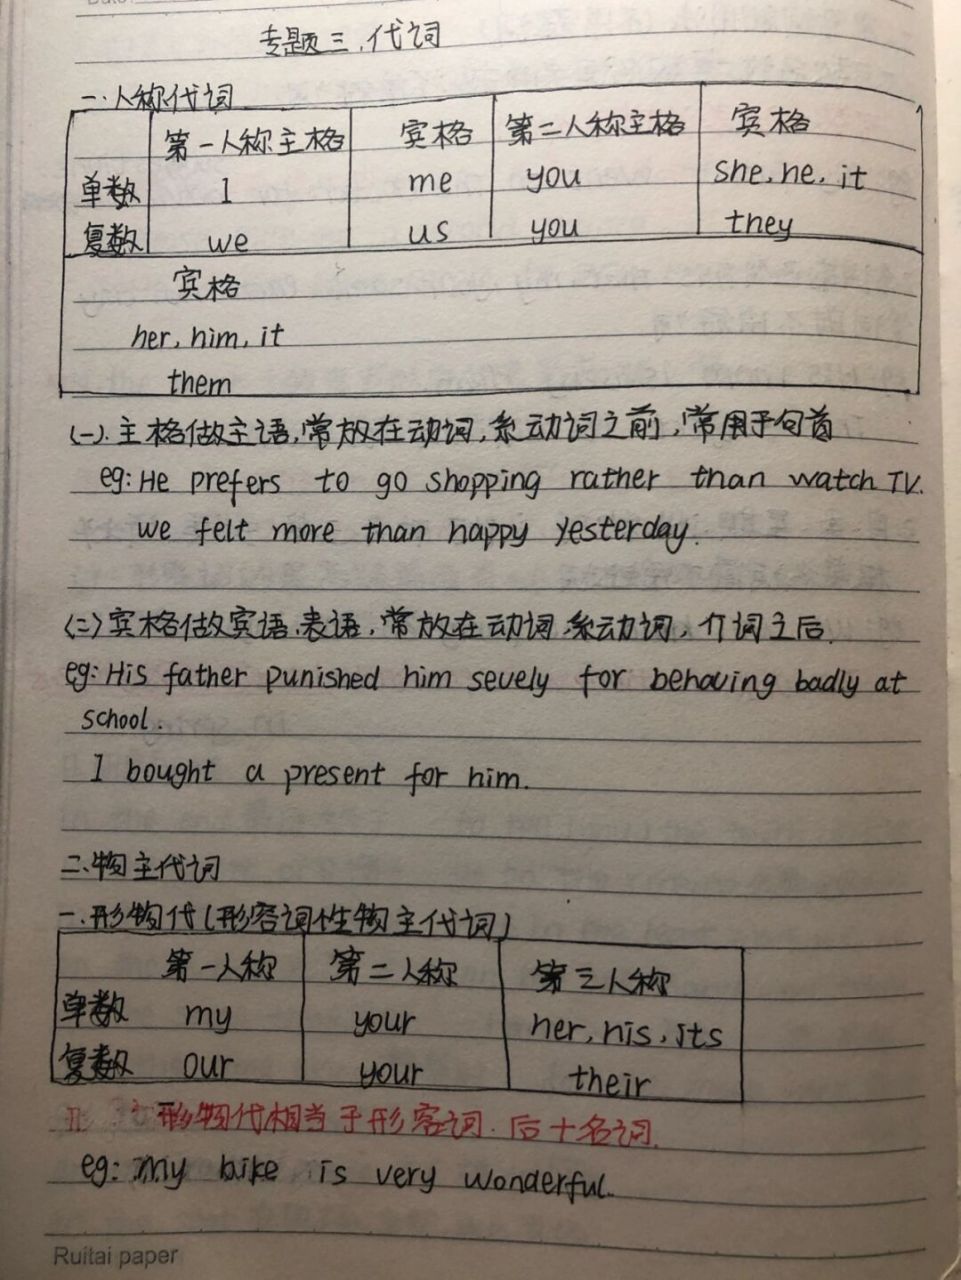 专题三.代词
一.人称代词
第一人称主格 宾格 第二人称主格 宾格
单数 I me you she, he, it
复数 we us you they
宾格
her, him, it
them
(一). 主格做主语,常放在动词,系动词之前,常用于句首
eg: He prefers to go shopping rather than watch TV.
we felt more than happy yesterday.
(二) 宾格做宾语.表语,常放在动词,系动词,介词之后.
eg: His father punished him sevely for behaving badly at
school.
I bought a present for him.
二.物主代词
一.形物代(形容词性物主代词)
第一人称 第二人称 第三人称
单数 my your her, his, its
复数 our your their
形物代相当于形容词.后+名词.
eg: my bike is very wonderful.
Ruitai paper